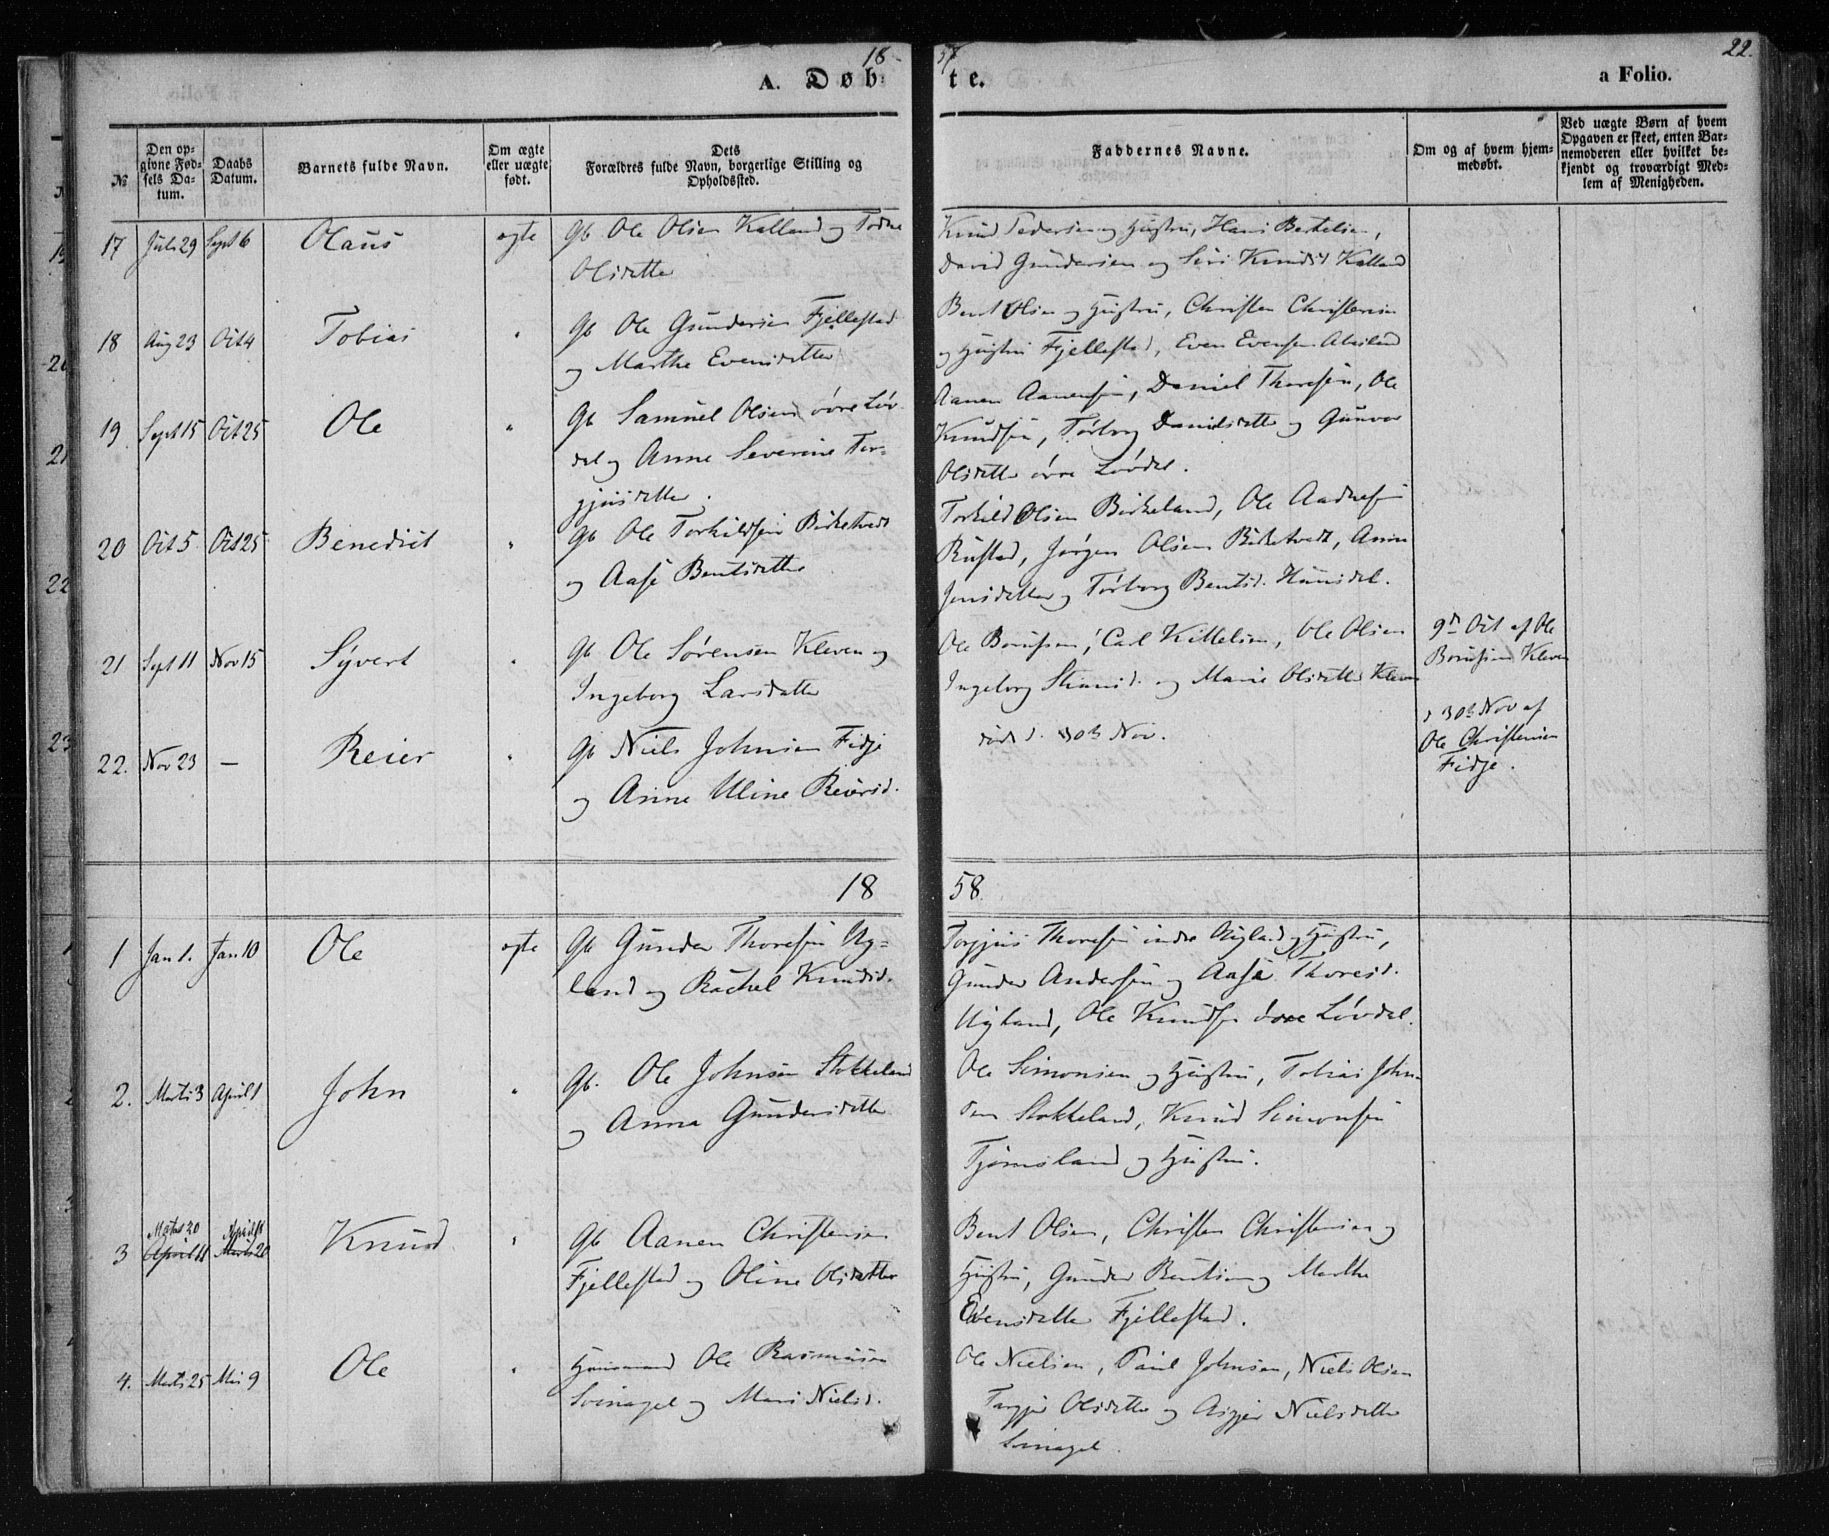 18 57 22.
A. Døbte. a Folio.
№
Den opgivne Fødsels Datum.
Daabs Datum.
Barnets fulde Navn.
Om ægte eller uægte født.
Dets Forældres fulde Navn, borgerlige Stilling og Opholdssted.
Faddernes Navne.
Om og af hvem hjemmedøbt.
Ved uægte Børn af hvem Opgaven er skeet, enten Barnemoderen eller hvilket bekjendt og troværdigt Medlem af Menigheden.
17 Juli 29 Sept 6 Olaus ægte Gb Ole Olsen Kalland og
Olsdatter
Knud Pedersen og Hustru, Hans Bertelsen,
David Gundersen og Siri Knudsd Kalland
18 Aug 23 Oct 4 Tobias " Gb Ole Gundersen Fjellestad
og Marthe Evensdatter
Bent Olsen og Hustru, Christen Christensen
og Hustru Fjellestad, Even Evensen
19 Sept 15 Oct 25 Ole " Gb Samuel Olsen øvre Løv-
del og Anne Severine Ter-
gjusdatter.
Aanen Aanensen, Daniel Thoresen, Ole
Knudsen, Torborg Danielsdatter og Gunvor
Olsdatter øvre Løvdel.
20 Oct 5 Oct 25 Benedict " Gb Ole Torkildsen Birketvedt
og Aase Bentsdatter
Torkild Olsen Birkeland, Ole Aadnesen
Rustad, Jørgen Olsen Birketvedt, Anne
Jensdatter og Torborg Bentsd. Hunsdal.
21 Sept 11 Nov 15 Syvert " Gb Ole Sørensen Kleven og
Ingeborg Larsdatter
Ole Borufsen, Carl Kittelsen, Ole Olsen
Ingeborg og Marie Olsdatter Kleven
9de Oct af Ole
Borufsen Kleven
22. Nov 23 — Reier " Gb Niels Johnsen Fidje
og Anne Uline Reiersd.
død d. 30te Nov.
d 30te Nov af
Ole Christensen
Fidje.
18 58.
1 Jan 1. Jan 10 Ole ægte Gb Gunder Thoresen Ug-
land og Rachel Knudsd.
Torgjus Thoresen indre Ugland og Hustru,
Gunder Andersen og Aase Thoresd.
Ugland, Ole Knudsen øvre Løvdel.
2. Marts 3 April 1 John " Gb. Ole Johnsen Stokkeland
og Anna Gundersdatter
Ole Simonsen og Hustru, Tobias John-
sen Stokkeland, Knud Simonsen
Tjomsland og Hustru.
Marts 20 April 11
3 April 11 Marts 20 Knud " Gb Aanen Christensen
Fjellestad og Oline Olsdatter
Bent Olsen, Christen Christensen og
Hustru, Gunder Bentsen og Marthe
Evensdatter Fjellestad.
4. Marts 25 Mai 9 Ole " Huusmand Ole Rasmusen
Svinagel og Mari Nielsd.
Ole Nielsen, Paul Johnsen, Niels Olsen
Olsdatter og Nielsdatter
Svinagel.